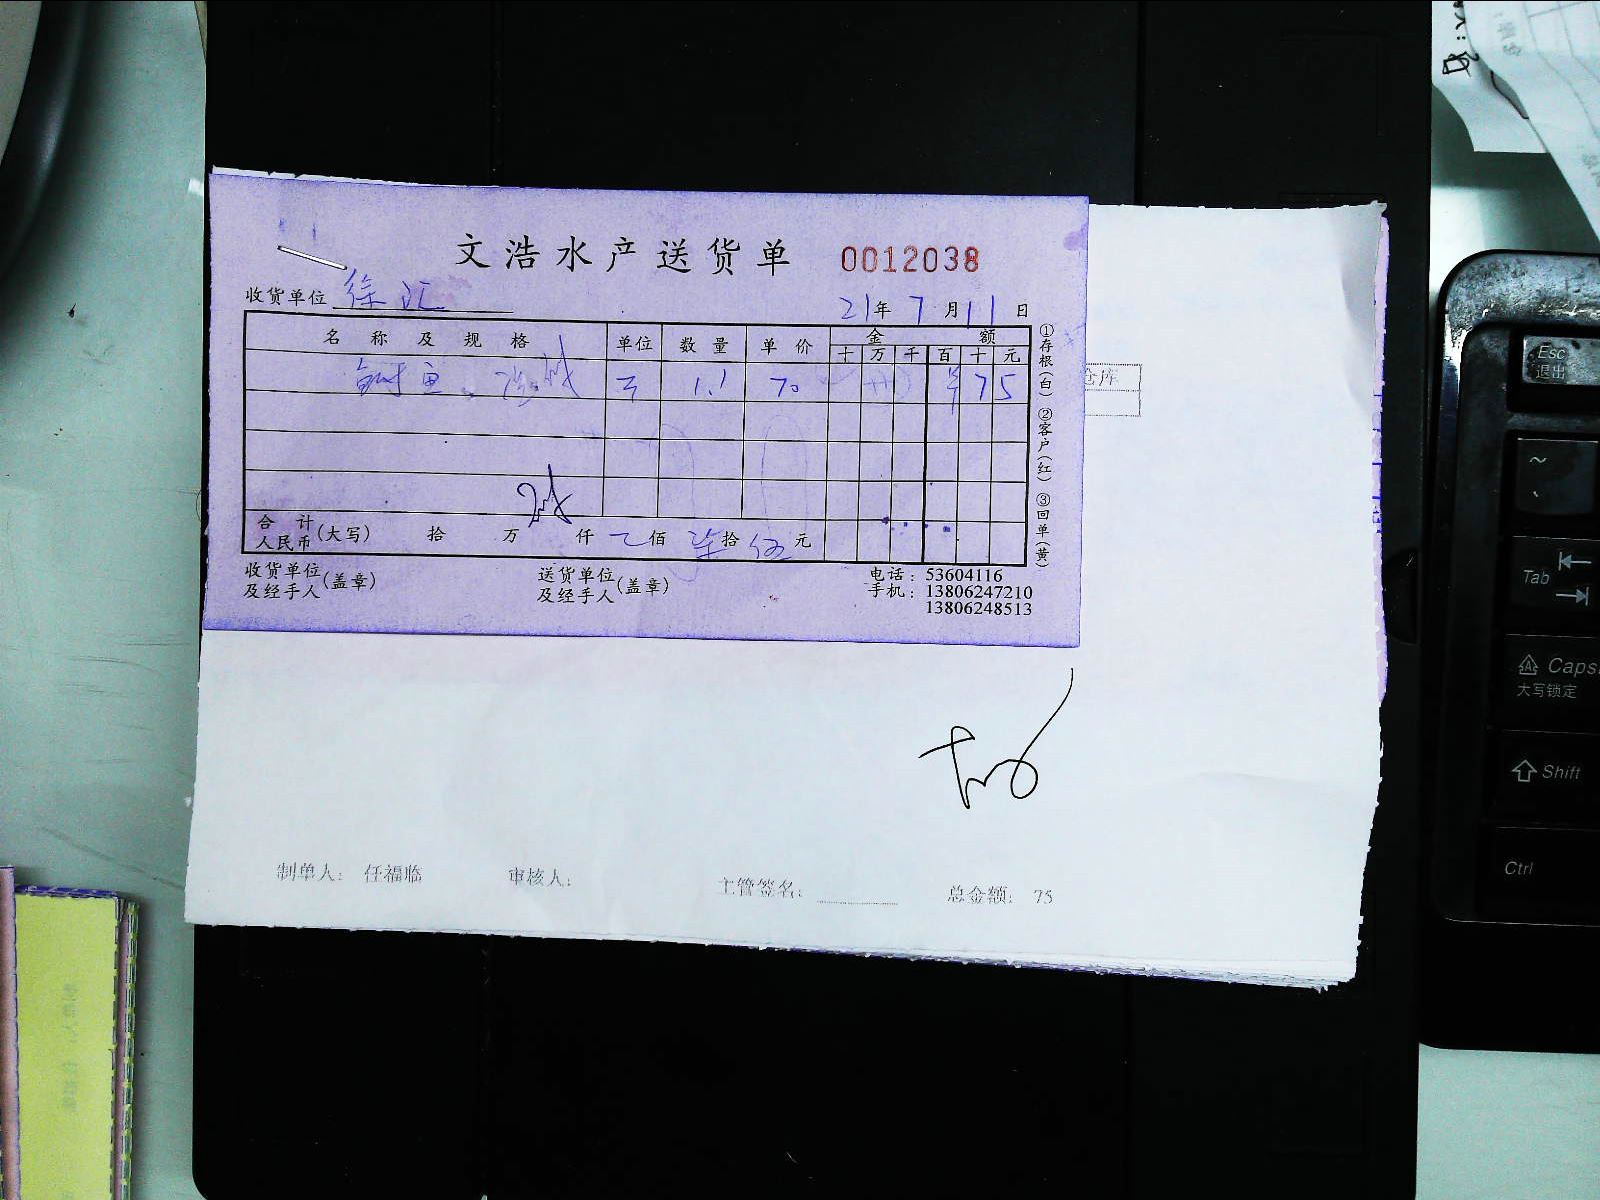 文浩水产送货单 0012038
收货单位 徐汇 21年7月11日
名称及规格 单位 数量 单价 金额
十 万 千 百 十 元
鱼 1.1 70 ¥ 7 5
合计人民币(大写) 拾 万 仟 佰 柒拾 伍元
收货单位及经手人(盖章) 送货单位及经手人(盖章) 电话：53604116
手机：13806247210
13806248513
①存根(白) ②客户(红) ③回单(黄)
仓库
制单人： 任福临 审核人： 主管签名： 总金额： 75
Esc
退出
~
Tab
Caps
大写锁定
Shift
Ctrl